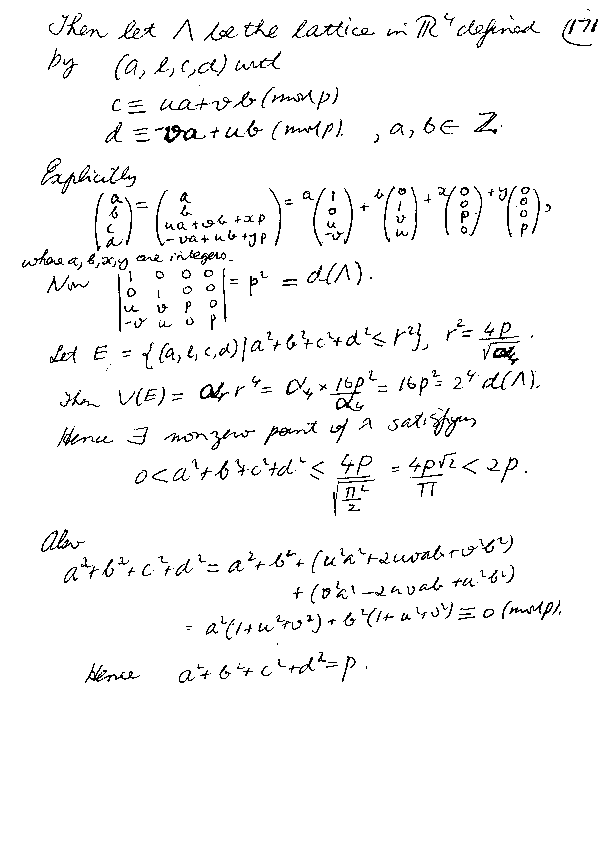 Then let Λ be the lattice in ℝ⁴ defined (171
by (a, b, c, d) with
c ≡ ua + vb (mod p)
d ≡ -va + ub (mod p). , a, b ∈ ℤ.
Explicitly
(a b c d) = (a b ua+vb+xp -va+ub+yp) = a(1 0 u -v) + b(0 1 v u) + x(0 0 p 0) + y(0 0 0 p),
where a, b, x, y are integers.
Now |1 0 0 0; 0 1 0 0; u v p 0; -v u 0 p| = p² = d(Λ).
Let E = {(a, b, c, d) | a²+b²+c²+d² ≤ r²}, r² = 4p/√α₄.
Then V(E) = α₄ r⁴ = α₄ × 16p²/α₄ = 16p² = 2⁴ d(Λ).
Hence ∃ nonzero point of Λ satisfying
0 < a²+b²+c²+d² ≤ 4p/√(π²/2) = 4p√2/π < 2p.
Also
a²+b²+c²+d² = a²+b² + (u²a²+2uvab+v²b²)
+ (v²a²-2uvab+u²b²)
= a²(1+u²+v²) + b²(1+u²+v²) ≡ 0 (mod p).
Hence a²+b²+c²+d² = p.